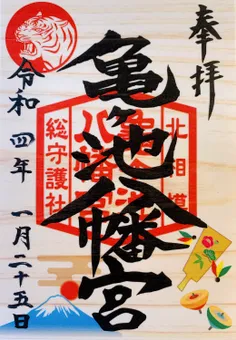 奉拝
亀池八幡宮
北相模
亀ヶ池
八幡宮
総守護社
令和四年一月二十五日